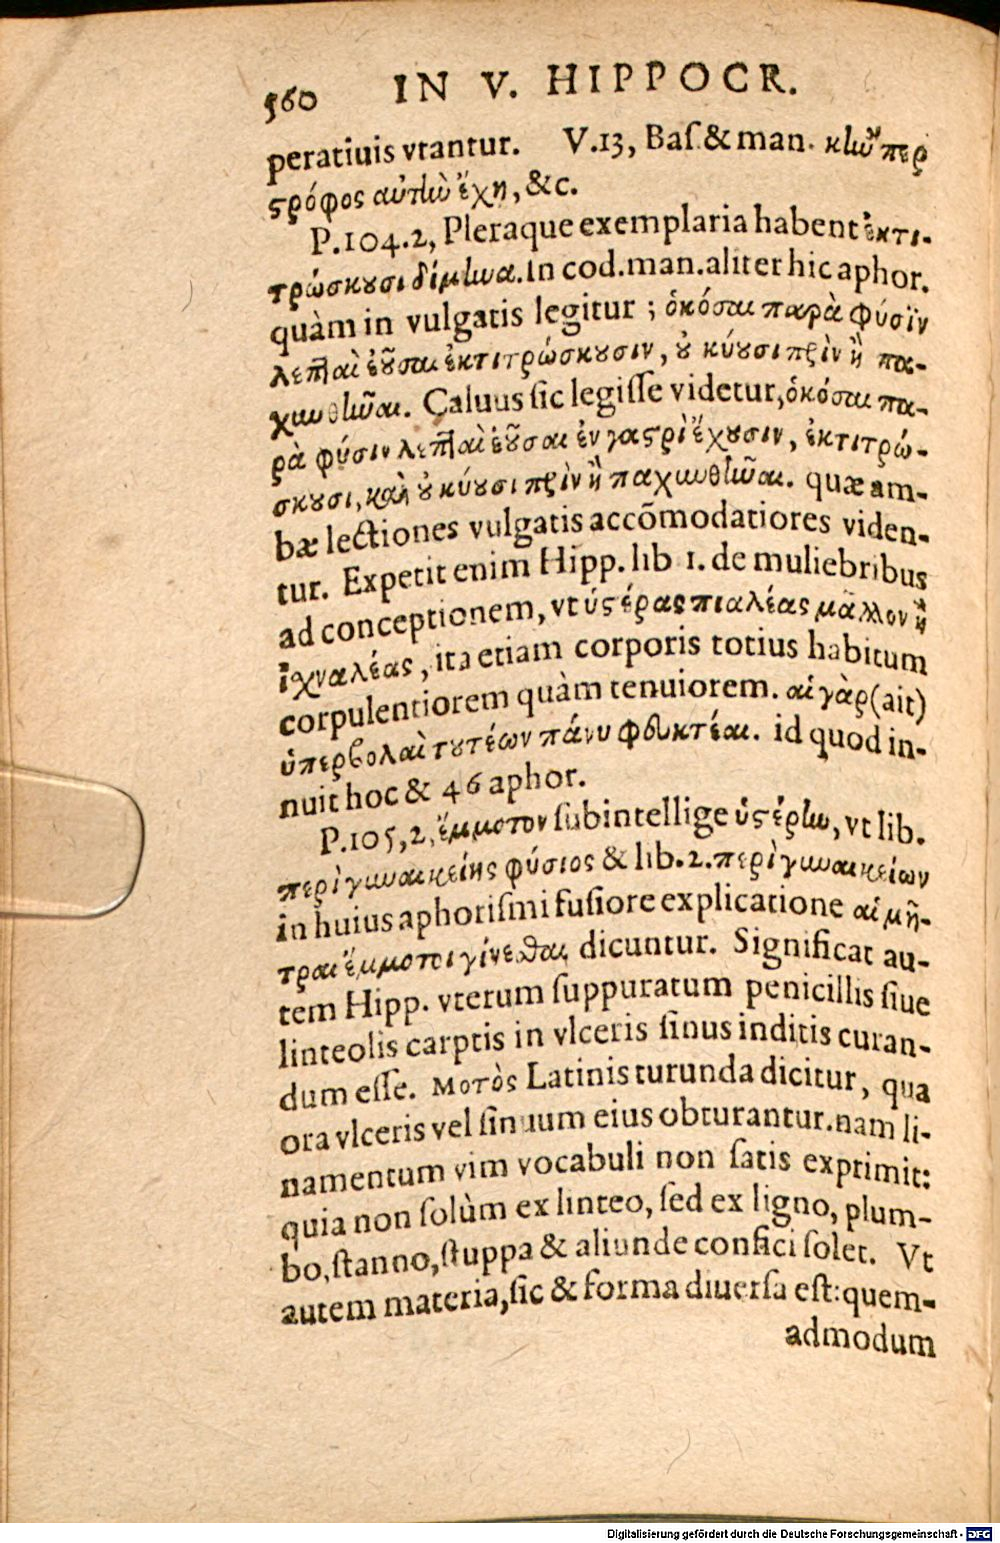 560 IN V. HIPPOCR.
peratiuis vtantur. V.13, Baſ.& man. κἢν περ
ςρόφος αὐτὴν ἔχη, &c.
P.104.2, Pleraque exemplaria habent ἐκτι-
τρώσκουσι δίμηνα. In cod.man.aliter hic aphor.
quàm in vulgatis legitur ; ὁκόσαι παρὰ φύσϊν
λεπταὶ ἐοῦσαι ἐκτιτρώσκουσιν, οὐ κύουσι πρὶν ἢ πα-
χυνθῆναι. Caluus ſic legiſſe videtur, ὁκόσαι πα-
ρὰ φύσιν λεπταὶ ἐοῦσαι ἐν γαςρὶ ἔχουσιν, ἐκτιτρώ-
σκουσι, καὶ οὐ κύουσι πρὶν ἢ παχυνθῆναι. quæ am-
bæ lectiones vulgatis accõmodatiores viden-
tur. Expetit enim Hipp. lib 1. de muliebribus
ad conceptionem, vt ὑςέρας πιαλέας μᾶλλον ἢ
ἰχναλέας, ita etiam corporis totius habitum
corpulentiorem quàm tenuiorem. αἱ γὰρ (ait)
ὑπερβολαὶ τουτέων πάνυ φθυκτέαι. id quod in-
nuit hoc & 46 aphor.
P.105,2, ἔμμοτον ſubintellige ὑςέρην, vt lib.
περὶ γυναικείης φύσιος & lib.2. περὶ γυναικείων
in huius aphoriſmi fuſiore explicatione αἱ μῆ-
τραι ἔμμοτοι γίνεσθαι dicuntur. Significat au-
tem Hipp. vterum ſuppuratum penicillis ſiue
linteolis carptis in vlceris ſinus inditis curan-
dum eſſe. Μοτὸς Latinis turunda dicitur, qua
ora vlceris vel ſinuum eius obturantur. nam li-
namentum vim vocabuli non ſatis exprimit:
quia non ſolùm ex linteo, ſed ex ligno, plum-
bo, ſtanno, ſtuppa & aliunde confici ſolet. Vt
autem materia, ſic & forma diuerſa eſt: quem-
admodum
Digitalisierung gefördert durch die Deutsche Forschungsgemeinschaft - DFG